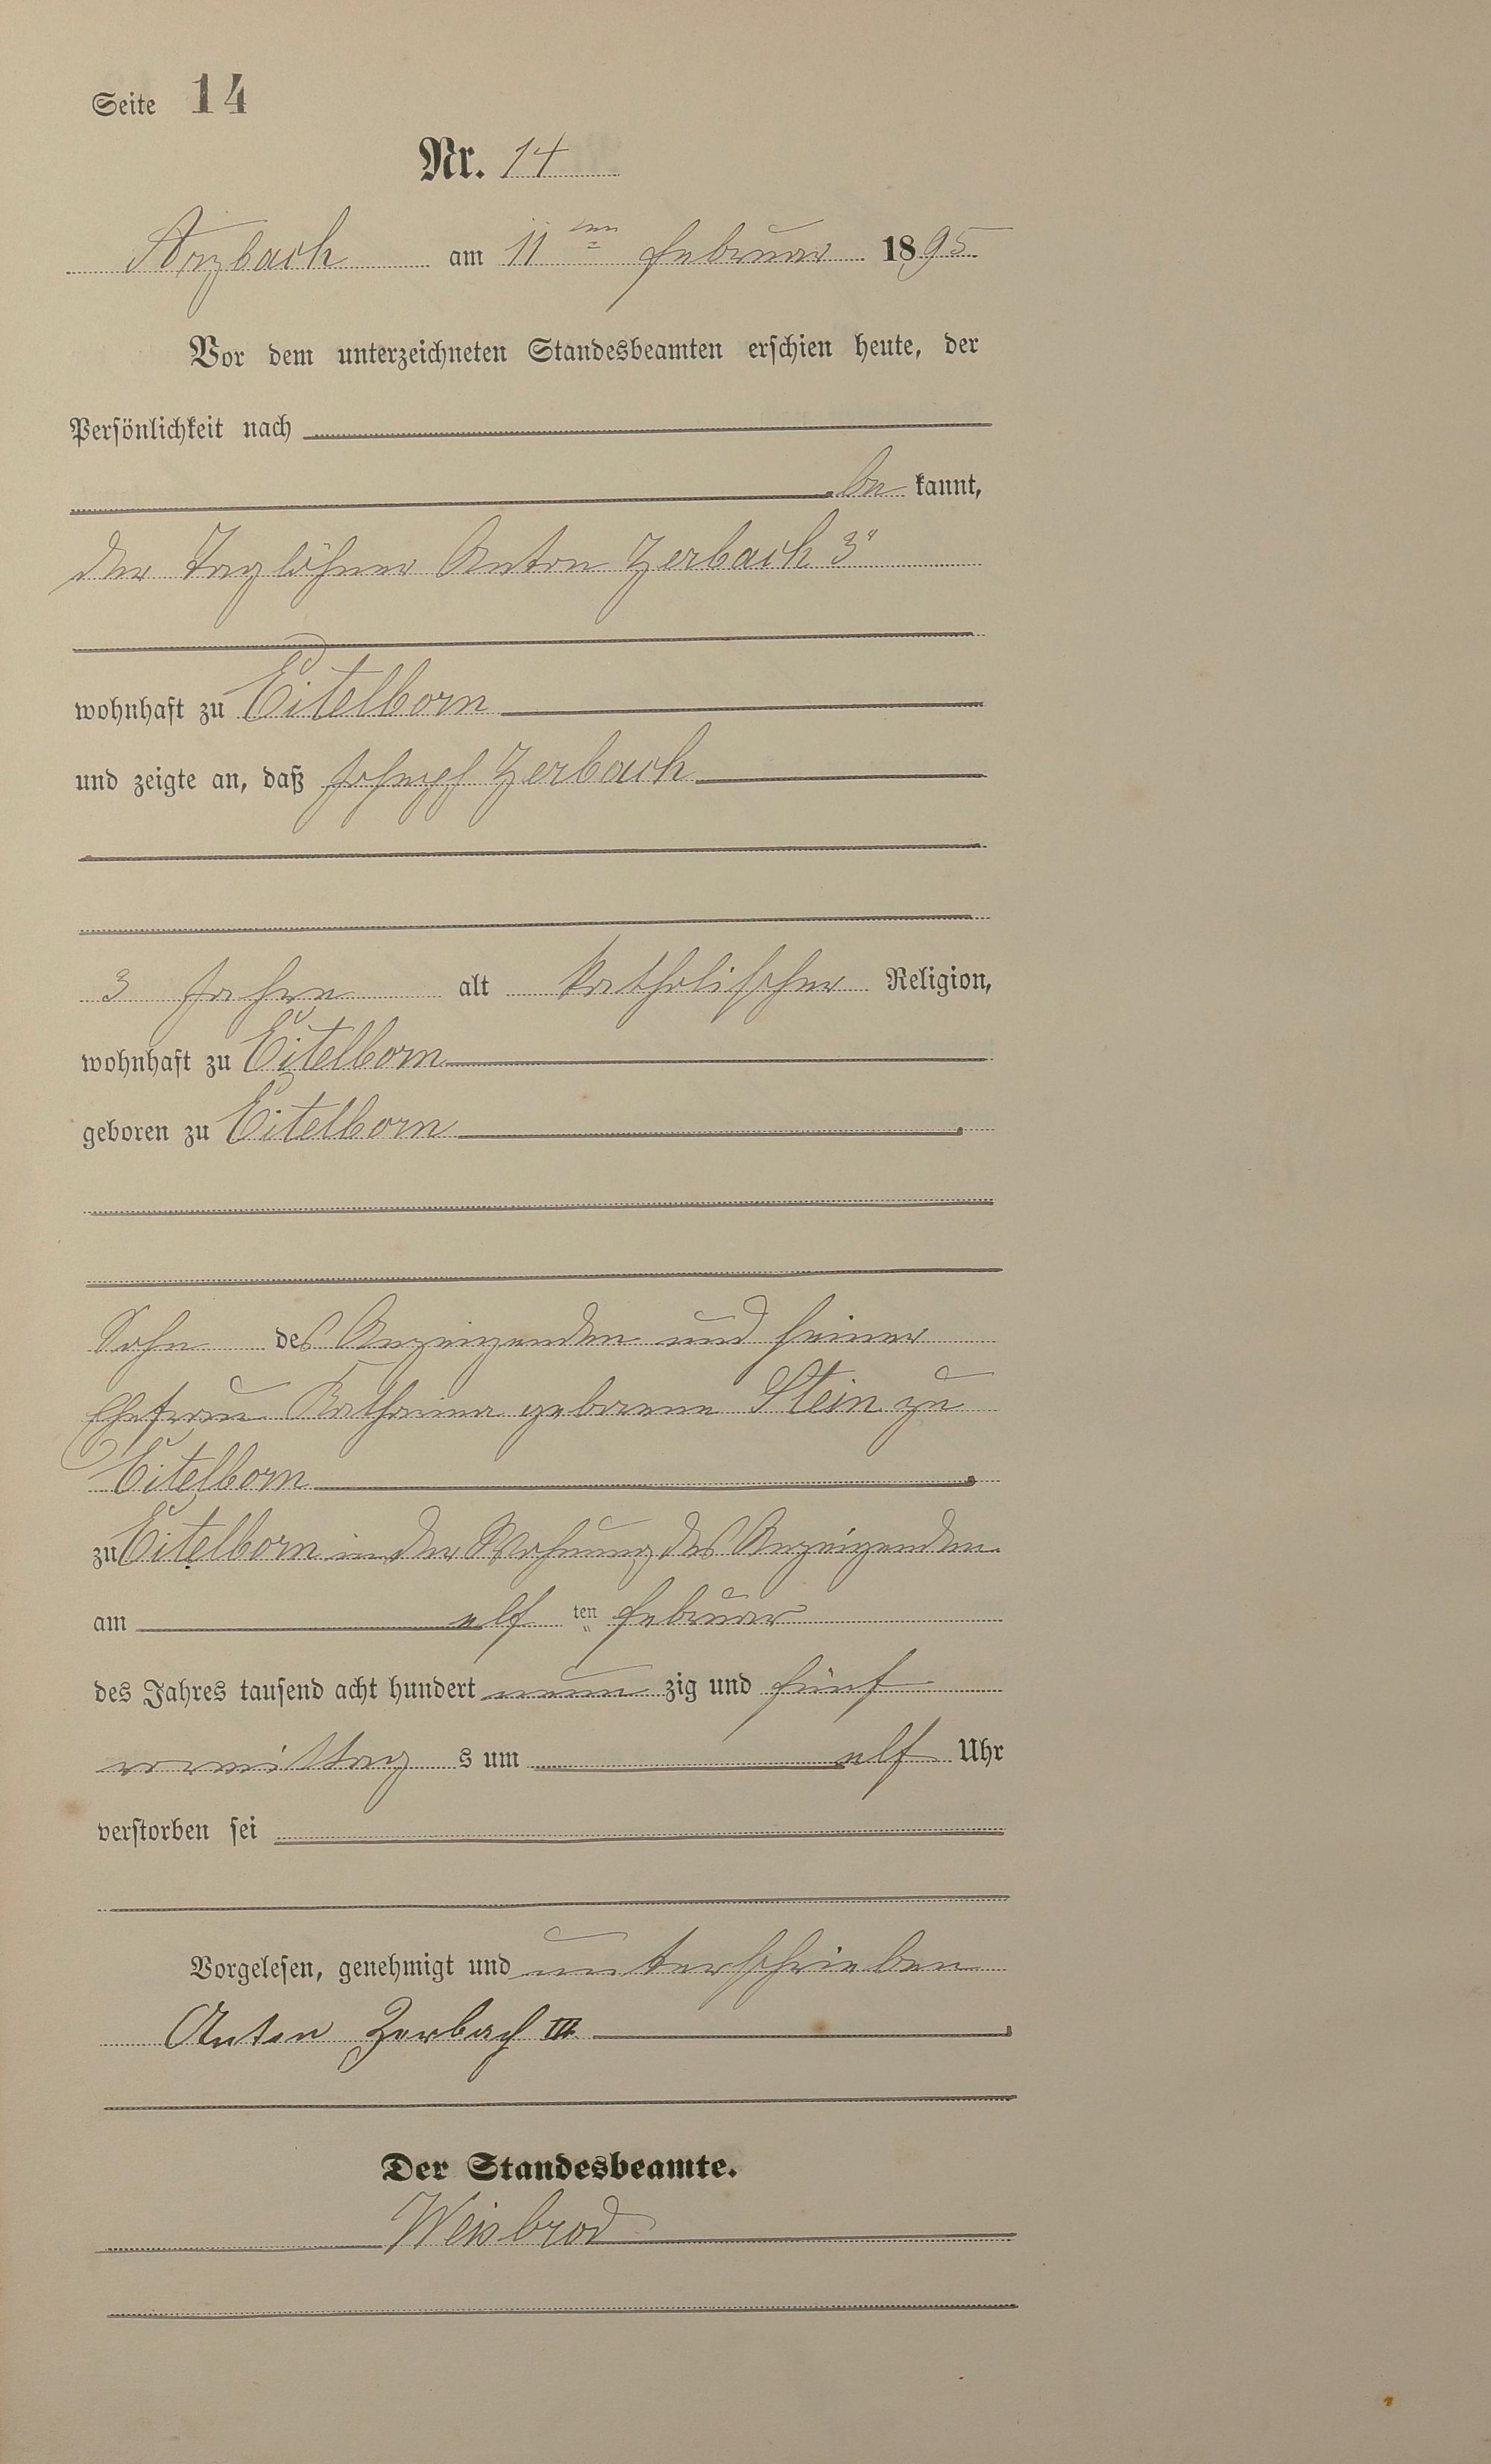 Seite 14
Nr. 14
Arzbach am 11 ten Februar 1895
Vor dem unterzeichneten Standesbeamten erschien heute, der
Persönlichkeit nach
be kannt,
der Taglöhner Anton Zerbach 3"
wohnhaft zu Eitelborn
und zeigte an, daß Joseph Zerbach
3 Jahre alt katholischer Religion,
wohnhaft zu Eitelborn
geboren zu Eitelborn
Sohn des Anzeigenden und seiner
Ehefrau Katharina geborene Stein zu
Eitelborn
zu Eitelborn in der Wohnung des Anzeigenden
am elf ten Februar
des Jahres tausend acht hundert neun zig und fünf
vormittag s um elf Uhr
verstorben sei
Vorgelesen, genehmigt und unterschrieben
Anton Zerbach III.
Der Standesbeamte.
Weisbrod